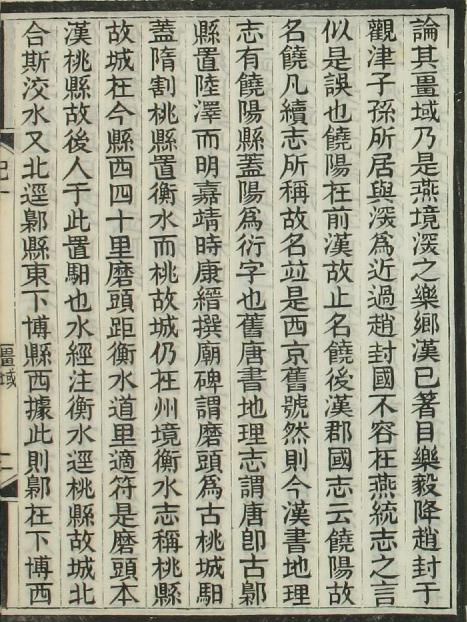 論其畺域乃是燕境深之樂鄉漢已箸目樂毅降趙封于
觀津子孫所居與深爲近過趙封國不容在燕統志之言
似是誤也饒陽在前漢故止名饒後漢郡國志云饒陽故
名饒凡續志所稱故名竝是西京舊號然則今漢書地理
志有饒陽縣蓋陽爲衍字也舊唐書地理志謂唐卽古鄡
縣置陸澤而明嘉靖時康縉撰廟碑謂磨頭爲古桃城馹
蓋隋割桃縣置衡水而桃故城仍在州境衡水志稱桃縣
故城在今縣西四十里磨頭距衡水道里適符是磨頭本
漢桃縣故後人于此置馹也水經注衡水逕桃縣故城北
合斯洨水又北逕鄡縣東下博縣西據此則鄡在下博西
記一
畺域